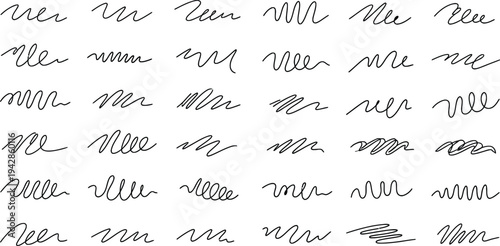 Adobe Stock | #1942860116